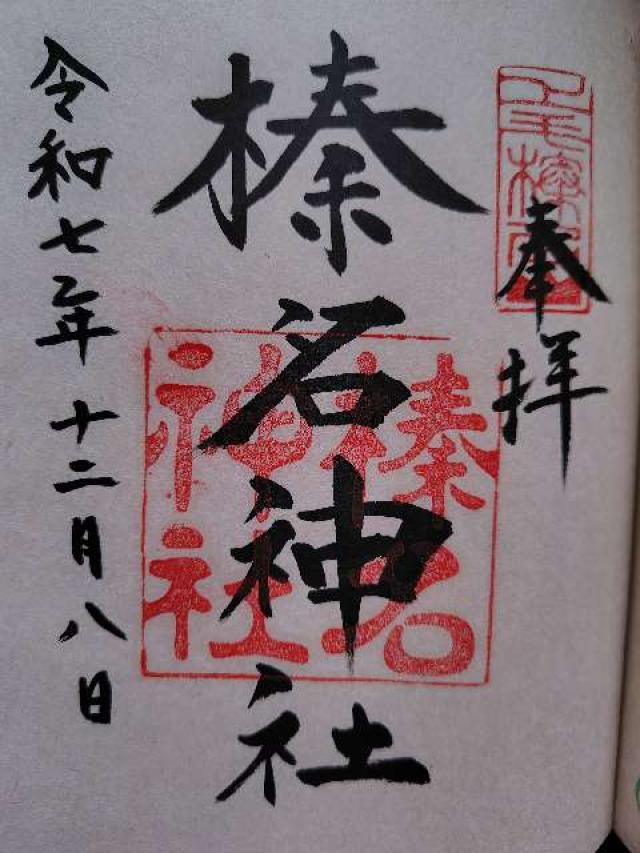 奉拝
榛名神社
榛名神社
令和七年十二月八日